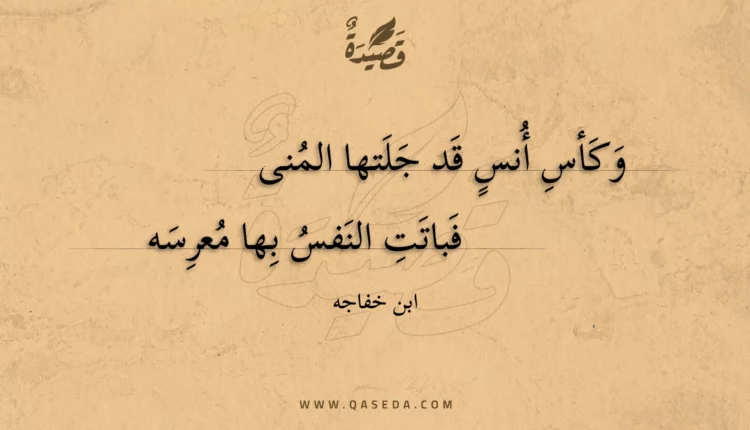 قَصِيدَةٌ
وَكَأسِ أُنسٍ قَد جَلَتها المُنى
فَباتَتِ النَفسُ بِها مُعرِسَه
ابن خفاجه
WWW.QASEDA.COM